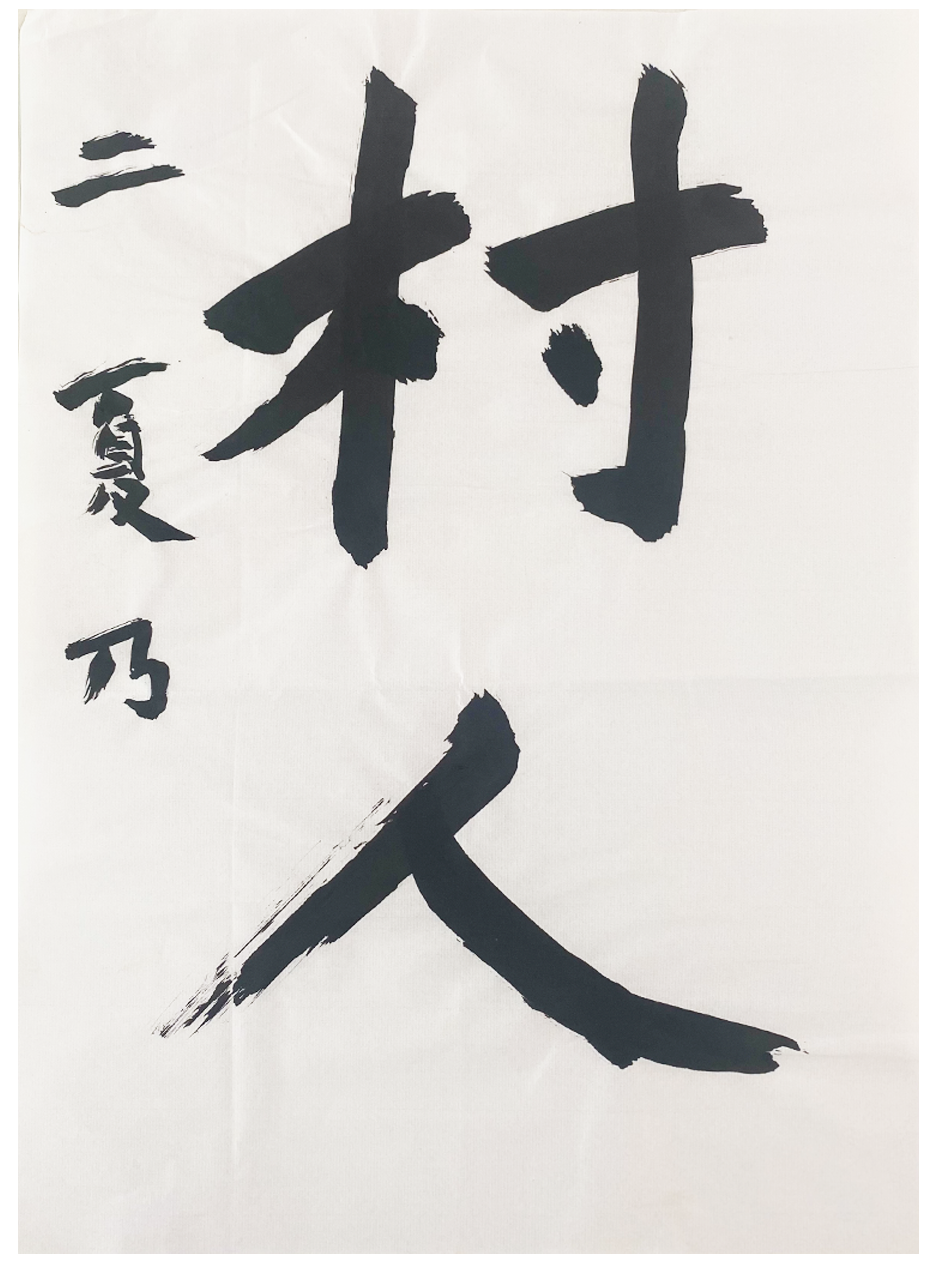 村人
二 夏乃